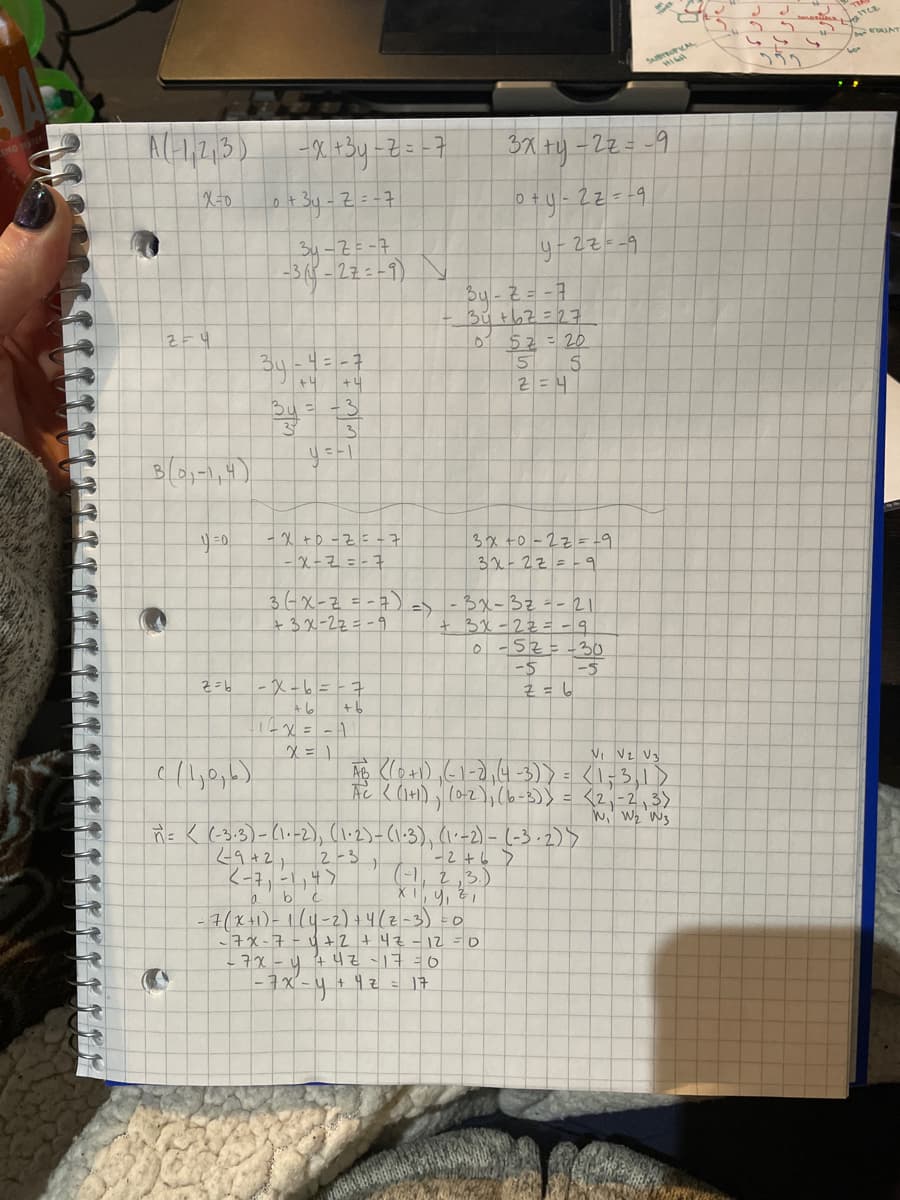 SUBTROPICAL
HIGH
A(-1,2,3) -x+3y-z=-7 3x+y-2z=-9
x=0 0+3y-z=-7 0+y-2z=-9
3y-z=-7 y-2z=-9
-3(y-2z=-9)
3y-z=-7
- 3y+6z=27
z=4 0 5z = 20
3y-4=-7 5 5
+4 +4 z=4
3y = -3
3 3
y=-1
B(0,-1,4)
y=0 -x+0-z=-7 3x+0-2z=-9
-x-z=-7 3x-2z=-9
3(-x-z=-7) => -3x-3z=-21
+3x-2z=-9 + 3x-2z=-9
0 -5z=-30
-5 -5
z=6 -x-6=-7 z=6
+6 +6
-x=-1
x=1
V1 V2 V3
C(1,0,6) AB→ <(0+1),(-1-2),(4-3)> = <1,-3,1>
AC→ <(1+1),(0-2),(6-3)> = <2,-2,3>
W1 W2 W3
n→= <(-3·3)-(1·-2),(1·2)-(1·3),(1·-2)-(-3·2)>
<-9+2, 2-3, -2+6>
<-7,-1,4> (-1,2,3)
a b c x1,y1,z1
-7(x+1)-1(y-2)+4(z-3)=0
-7x-7-y+2+4z-12=0
-7x-y+4z-17=0
-7x-y+4z=17